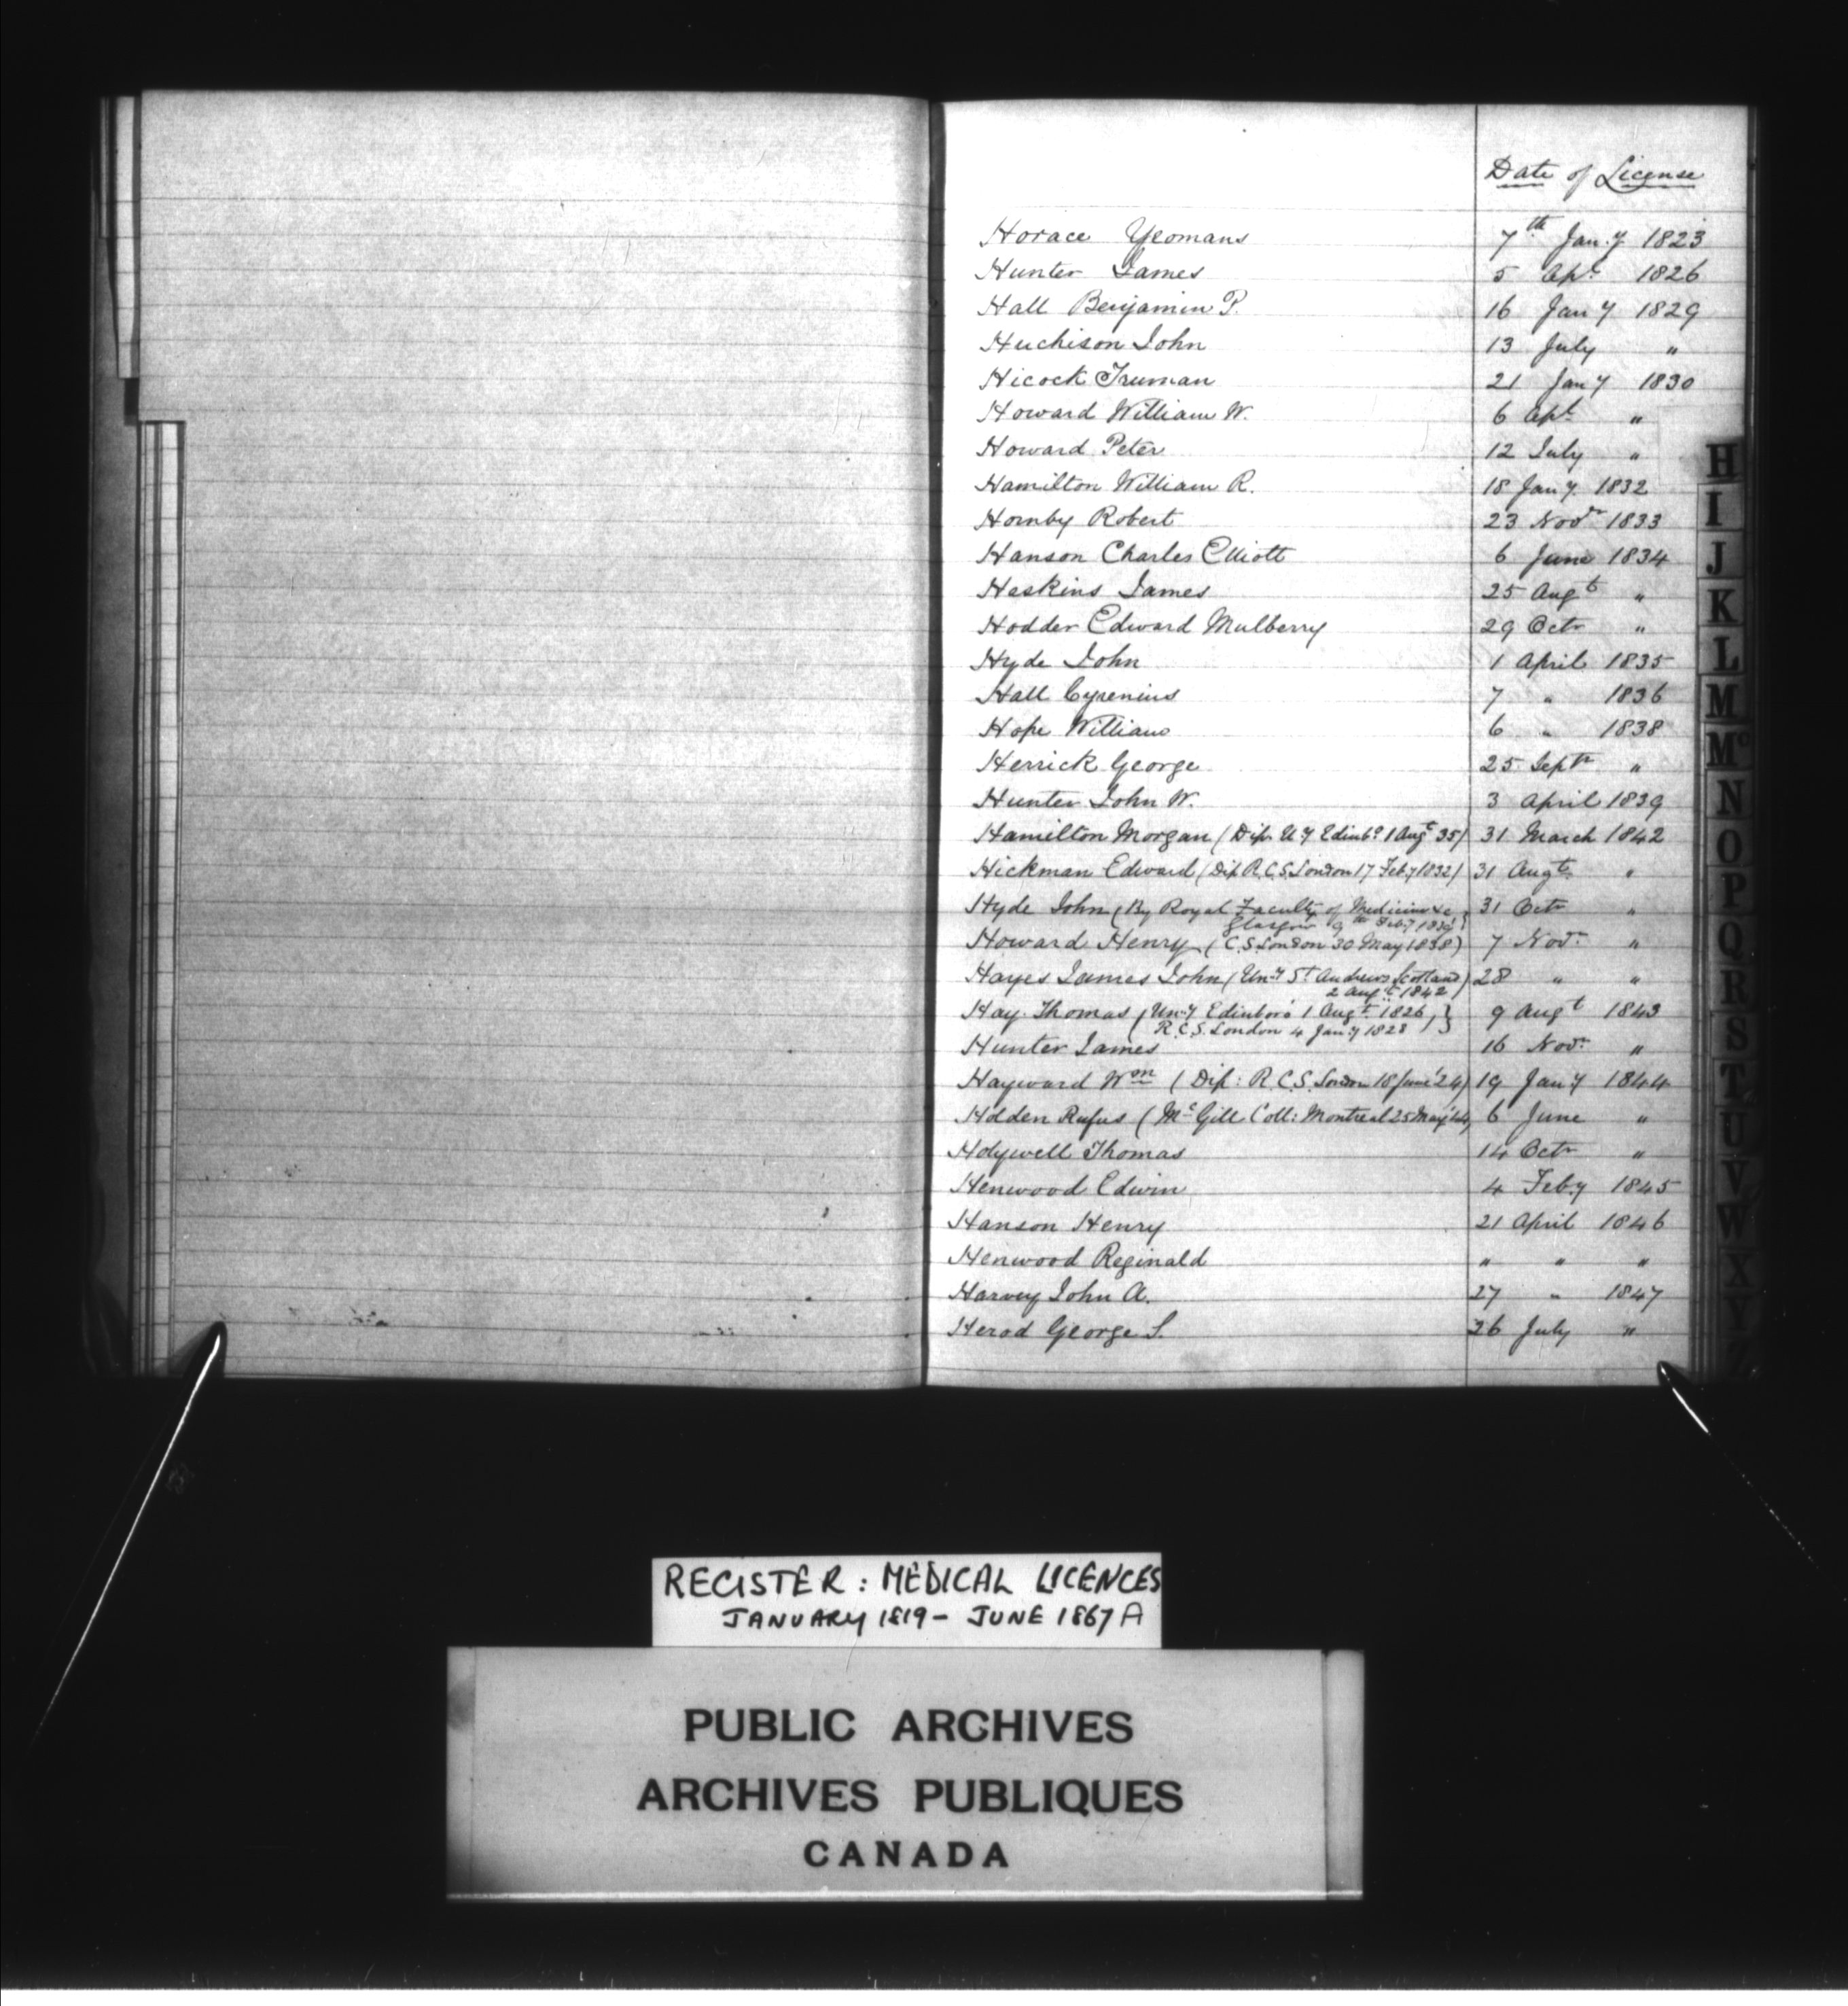 Date of License
Horace Yeomans 7th Jan.y 1823
Hunter James 5 Apl. 1826
Hall Benjamin P. 16 Jany 1829
Huchison John 13 July "
Hicock Truman 21 Jany 1830
Howard William W. 6 Apl. "
Howard Peter 12 July "
Hamilton William R. 18 Jany. 1832
Hornby Robert 23 Novr 1833
Hanson Charles Elliott 6 June 1834
Haskins James 25 Augt "
Hodder Edward Mulberry 29 Octr "
Hyde John 1 April 1835
Hall Cyrenius 7 " 1836
Hope William 6 " 1838
Herrick George 25 Septr "
Hunter John W. 3 April 1839
Hamilton Morgan (Dip. Uy Edinbo. 1 Augt 35) 31 March 1842
Hickman Edward (Dip. R.C.S. London 17 Feby 1832) 31 Augt. "
Hyde John (By Royal Faculty of Medicine &c 31 Octr "
Glasgow 9th Feby
Howard Henry (C.S. London 30 May 1838) 7 Novr. "
Hayes James John (Un.y St. Andrews Scotland) 28 " "
2 Augt. 1842
Hay Thomas (Un.y Edinboro' 1 Augt. 1826,) } 9 Augt 1843
R.C.S. London 4 Jany 1828
Hunter James 16 Novr. "
Hayward Wm (Dip: R.C.S. London 18 June '24) 19 Jany 1844
Holden Rufus (Mc.Gill Coll: Montreal 25 May '44) 6 June "
Holywell Thomas 14 Octr "
Henwood Edwin 4 Feby 1845
Hanson Henry 21 April 1846
Henwood Reginald " " "
Harvey John A. 27 " 1847
Herod George S. 26 July "
H
I
J
K
L
M
Mc
N
O
P
Q
R
S
T
U
V
W
X
Y
Z
REGISTER: MEDICAL LICENCES
JANUARY 1819 - JUNE 1867 A
PUBLIC ARCHIVES
ARCHIVES PUBLIQUES
CANADA